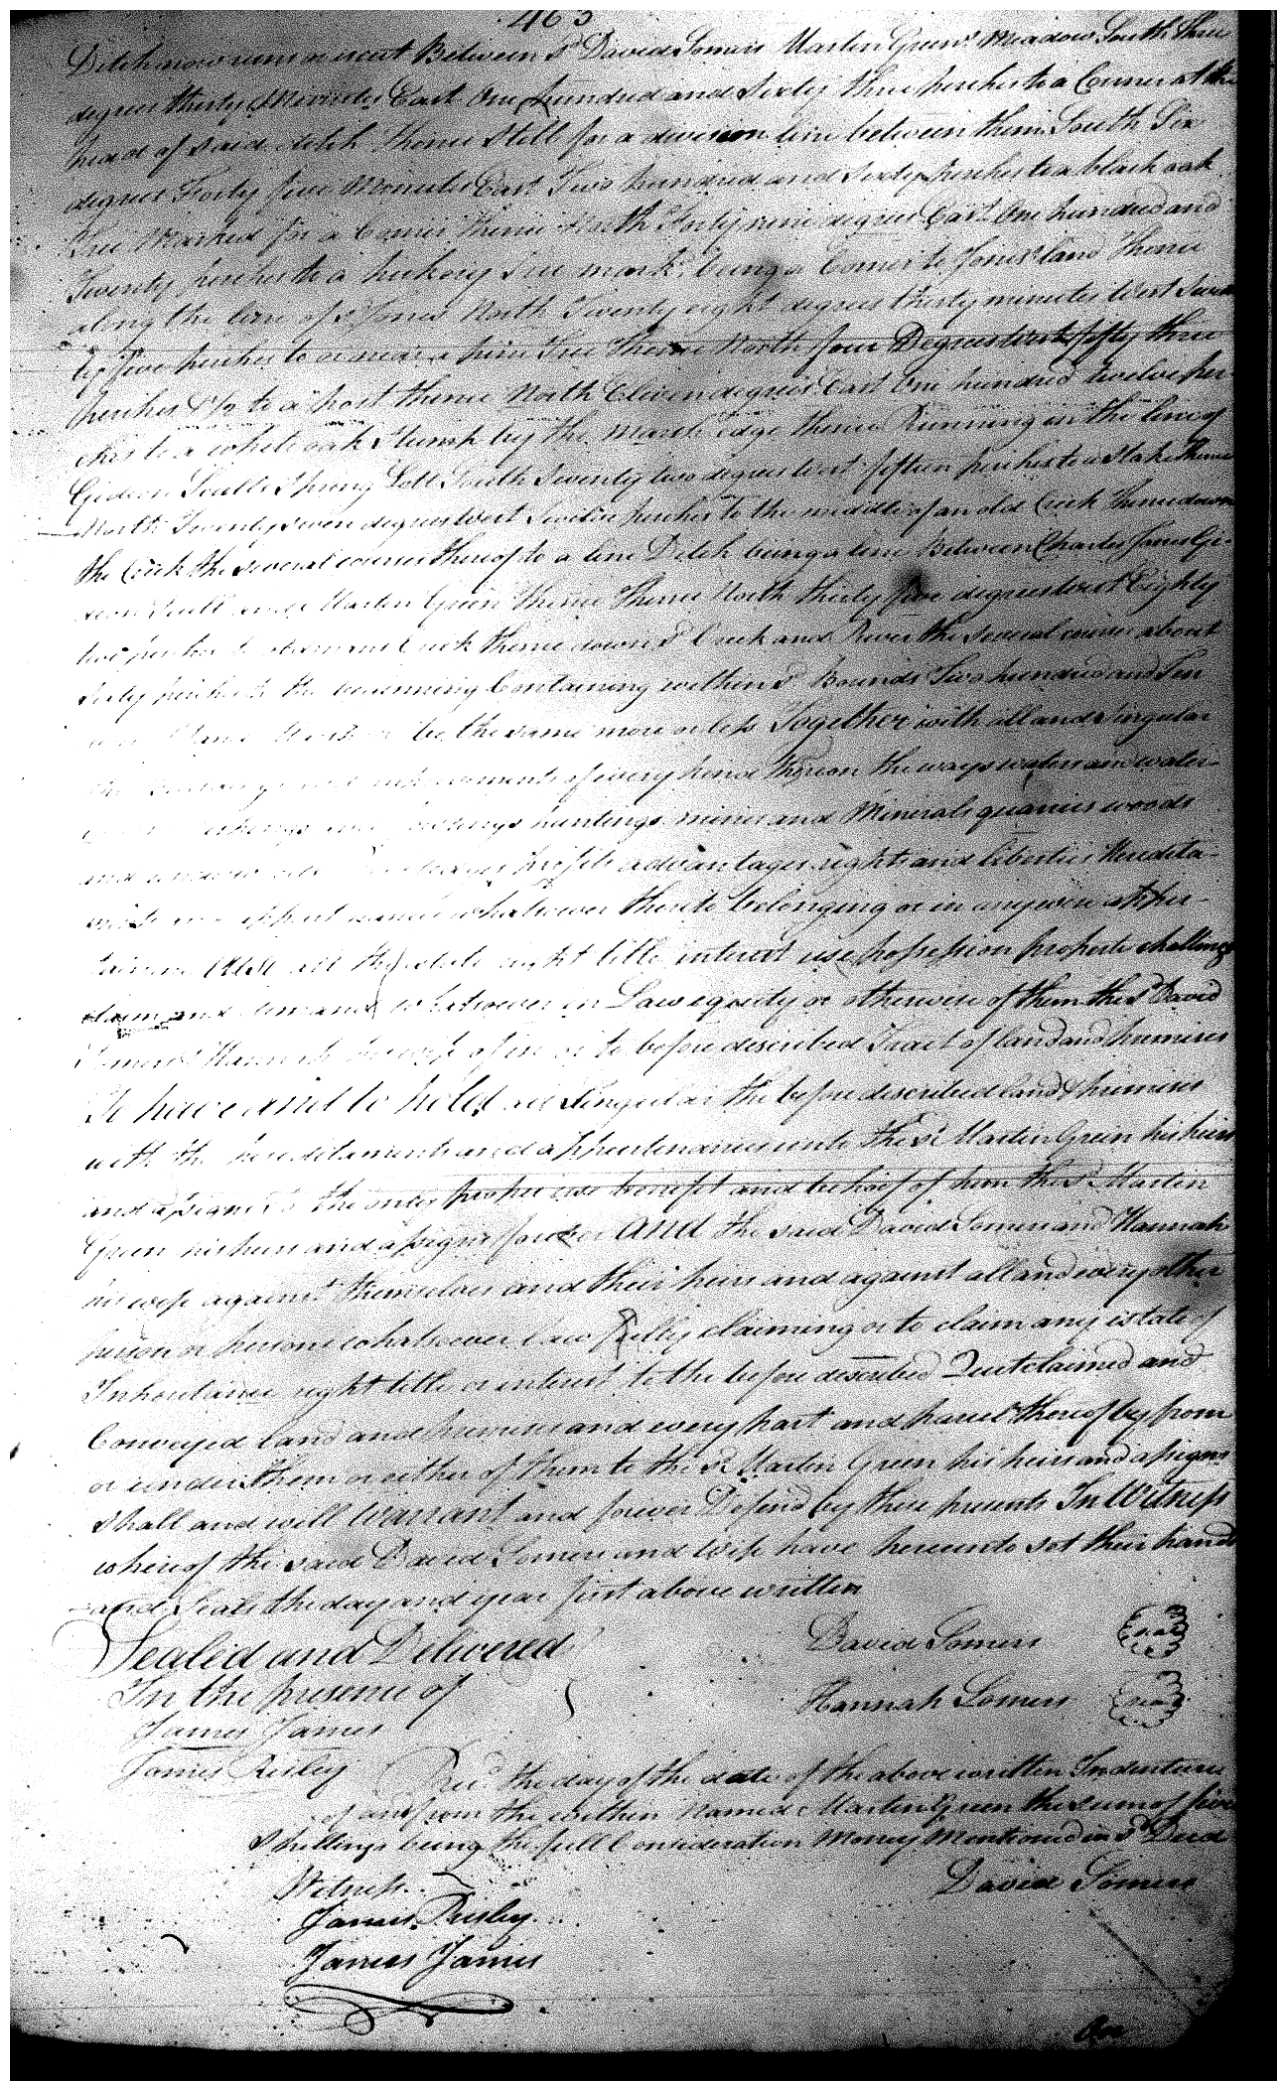 463
Ditch now runs or went Between sd David Somers Martin Greens Meadow South Three
degrees thirty Minnites East One hundred and Sixty three perches to a Corner at the
head of said ditch Thence Still for a division line between them South Six
degrees Forty five Minutes East Two hundred and Sixty perches to a black oak
Tree Marked for a Corner Thence North Forty nine degrees East One hundred and
Twenty perches to a hickory tree markd being a Corner to Jones land Thence
along the line of sd Jones North Twenty eight degrees thirty minutes West
five perches to or near a pine Tree Thence North four Degrees West fifty three
perches & 1/2 to a post thence North Eleven degrees East One hundred twelve per
ches to a white oak Stump by the marsh edge thence Running in the line of
Gideon Scull Spring Lott South Seventy two degrees West fifteen perches to a Stake Thence
North Twenty seven degrees West Twelve perches To the middle of an old Creek Thence down
the Creek the several courses thereof to a line Ditch being a line Between Charles Jones Gi-
deon Scull and Martin Green Thence Thence North thirty five degrees West Eighty
perches to Creek thence down sd Creek and River the several courses about
Sixty perches to the beginning Containing within sd Bounds Two hundred and Ten
be the same more or less Together with all and Singular
of every kind thereon the ways waters and water-
huntings mines and Minerals quaries woods
and profits advantages rights and liberties Heredita-
ments and appurtenances whatsoever thereto belonging or in anywise apper-
Also all the estate right title interest use possession property challinge
claim and demand whatsoever in Law equity or otherwise of them the sd David
Somers Hannah his wife of in or to before described Tract of land and premises
To have and to hold all Singular the before described land & premises
with the hereditaments and appurtenances unto the sd Martin Green his heirs
and assigns to the only proper use benefit and behoof of him the sd Martin
Green his heirs and assigns forever And the said David Somers and Hannah
his wife against themselves and their heirs and against all and every other
person or persons whatsoever lawfully claiming or to claim any estate of
Inheritance right title or interest to the before described Quitclaimed and
Conveyed land and premises and every part and parcel thereof by from
or under them or either of them to the sd Martin Green his heirs and assigns
Shall and will Warrant and forever Defend by these presents In Witness
whereof the said David Somers and Wife have hereunto set their hands
and Seals the day and year first above written
Sealed and Delivered David Somers seal
In the presence of Hannah Somers seal
James James
James Risley Recd the day of the date of the above written Indenture
of and from the within Named Martin Green the sum of five
Shillings being the full Consideration Money Mentioned in sd Deed
Witness David Somers
James Risley
James James